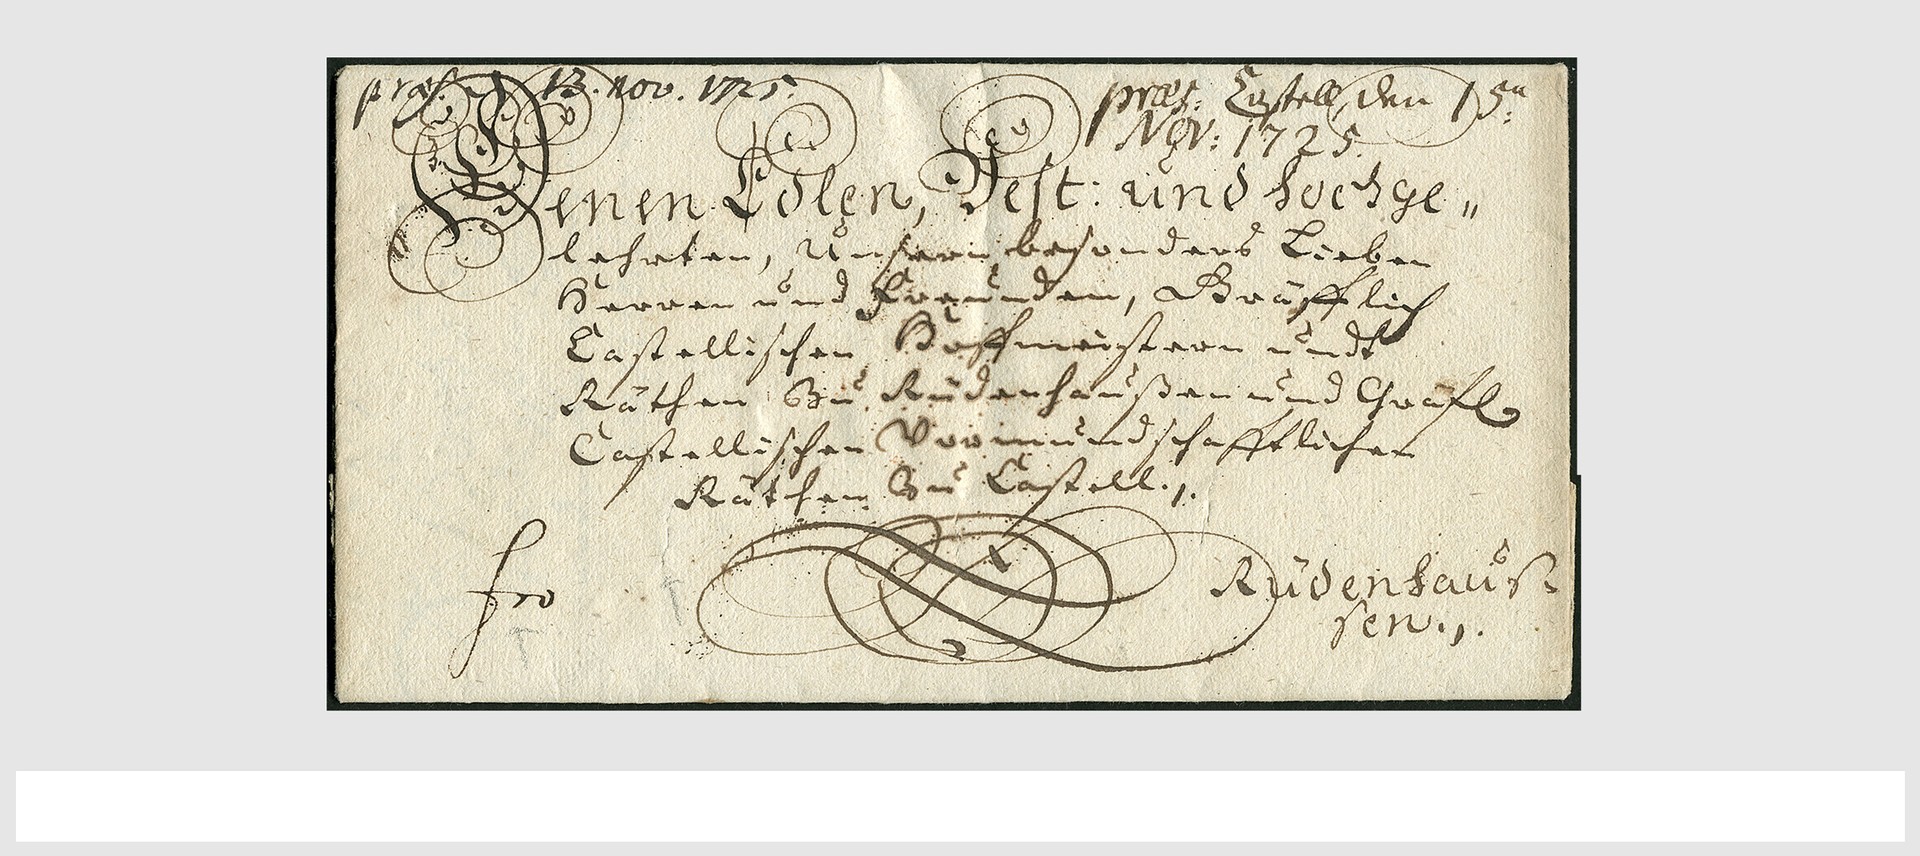 præs. d. 13. nov. 1725.
præs: Castell, den 15n
Nov: 1725.
Denen Edlen, Vest: und hochge„
lehrten, Unsern besonders Lieben
Herren und Freunden, Gräfflich
Castellischen Hoffmeistern undt
Räthen Zu Rüdenhaußen und Gräfl.
Castellischen Vormundschafftlichen
Räthen Zu Castell.
fro
Rüdenhauß-
sen.